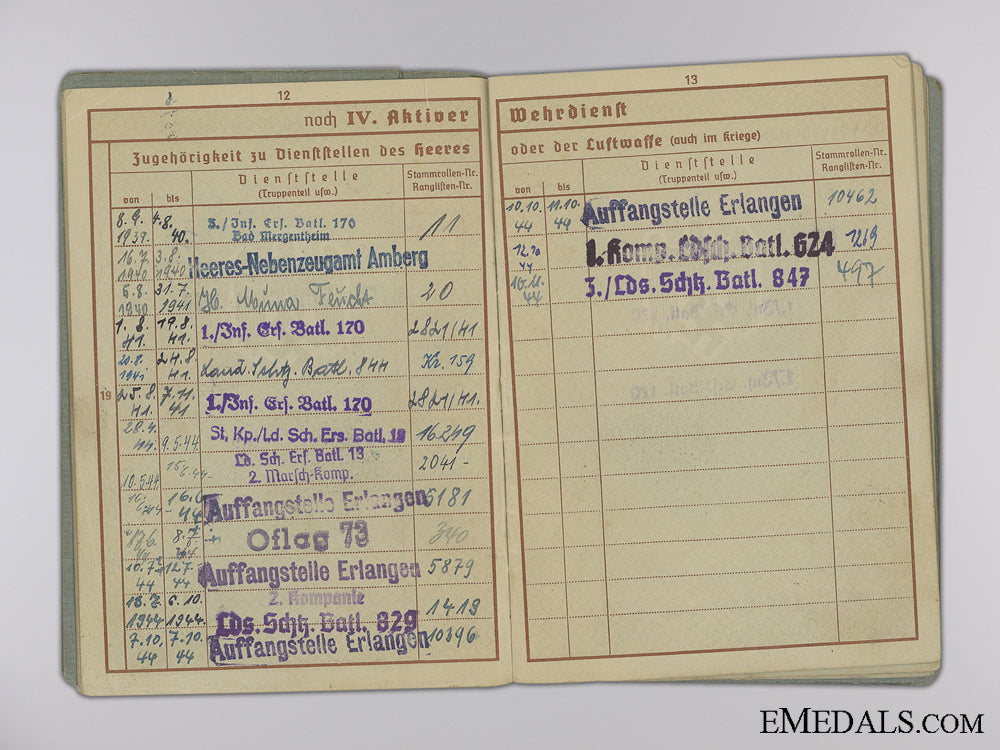 12
noch IV. Aktiver
Zugehörigkeit zu Dienststellen des Heeres
von bis
Dienststelle
(Truppenteil usw.)
Stammrollen-Nr.
Ranglisten-Nr.
8.9. 1939. 4.8. 40. 3./Inf. Ers. Batl. 170 11
Bad Mergentheim
16.7. 1940 3.8. 1940 Heeres-Nebenzeugamt Amberg
5.8. 1940 31.7. 1941 Muna Feucht 20
1.8. 41. 19.8. 41. 1./Inf. Ers. Batl. 170 2821/41
20.8. 1941 24.8. 41. Land. Schtz. Batl. 844 Kr. 159
19
25.8. 41. 7.11. 41 1./Inf. Ers. Batl. 170 2821/41.
28.4. 44. 9.5.44. St. Kp./Ld. Sch. Ers. Batl. 13 16249
10.5.44 Ld. Sch. Ers. Batl. 13 2041-
2. Marsch-Komp.
44 Auffangstelle Erlangen 6181
8.7. Oflag 73 340
10.7. 44 12.7. 44 Auffangstelle Erlangen 5879
2. Kompanie
13.7. 1944 6.10. 1944. Lds. Schtz. Batl. 829 1419
7.10. 44 7.10. 44 Auffangstelle Erlangen 10396
13
Wehrdienst
oder der Luftwaffe (auch im Kriege)
von bis
Dienststelle
(Truppenteil usw.)
Stammrollen-Nr.
Ranglisten-Nr.
10.10. 44 11.10. 44 Auffangstelle Erlangen 10462
12.10 44 1. Komp. Ldsch. Batl. 624 1269
44 3./Lds. Schtz. Batl. 847 497
eMedals.com